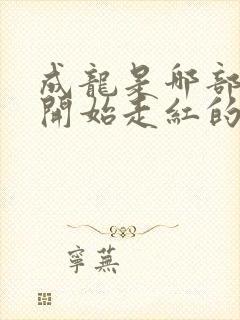 成龍是那部
開始走紅的
寧蕪